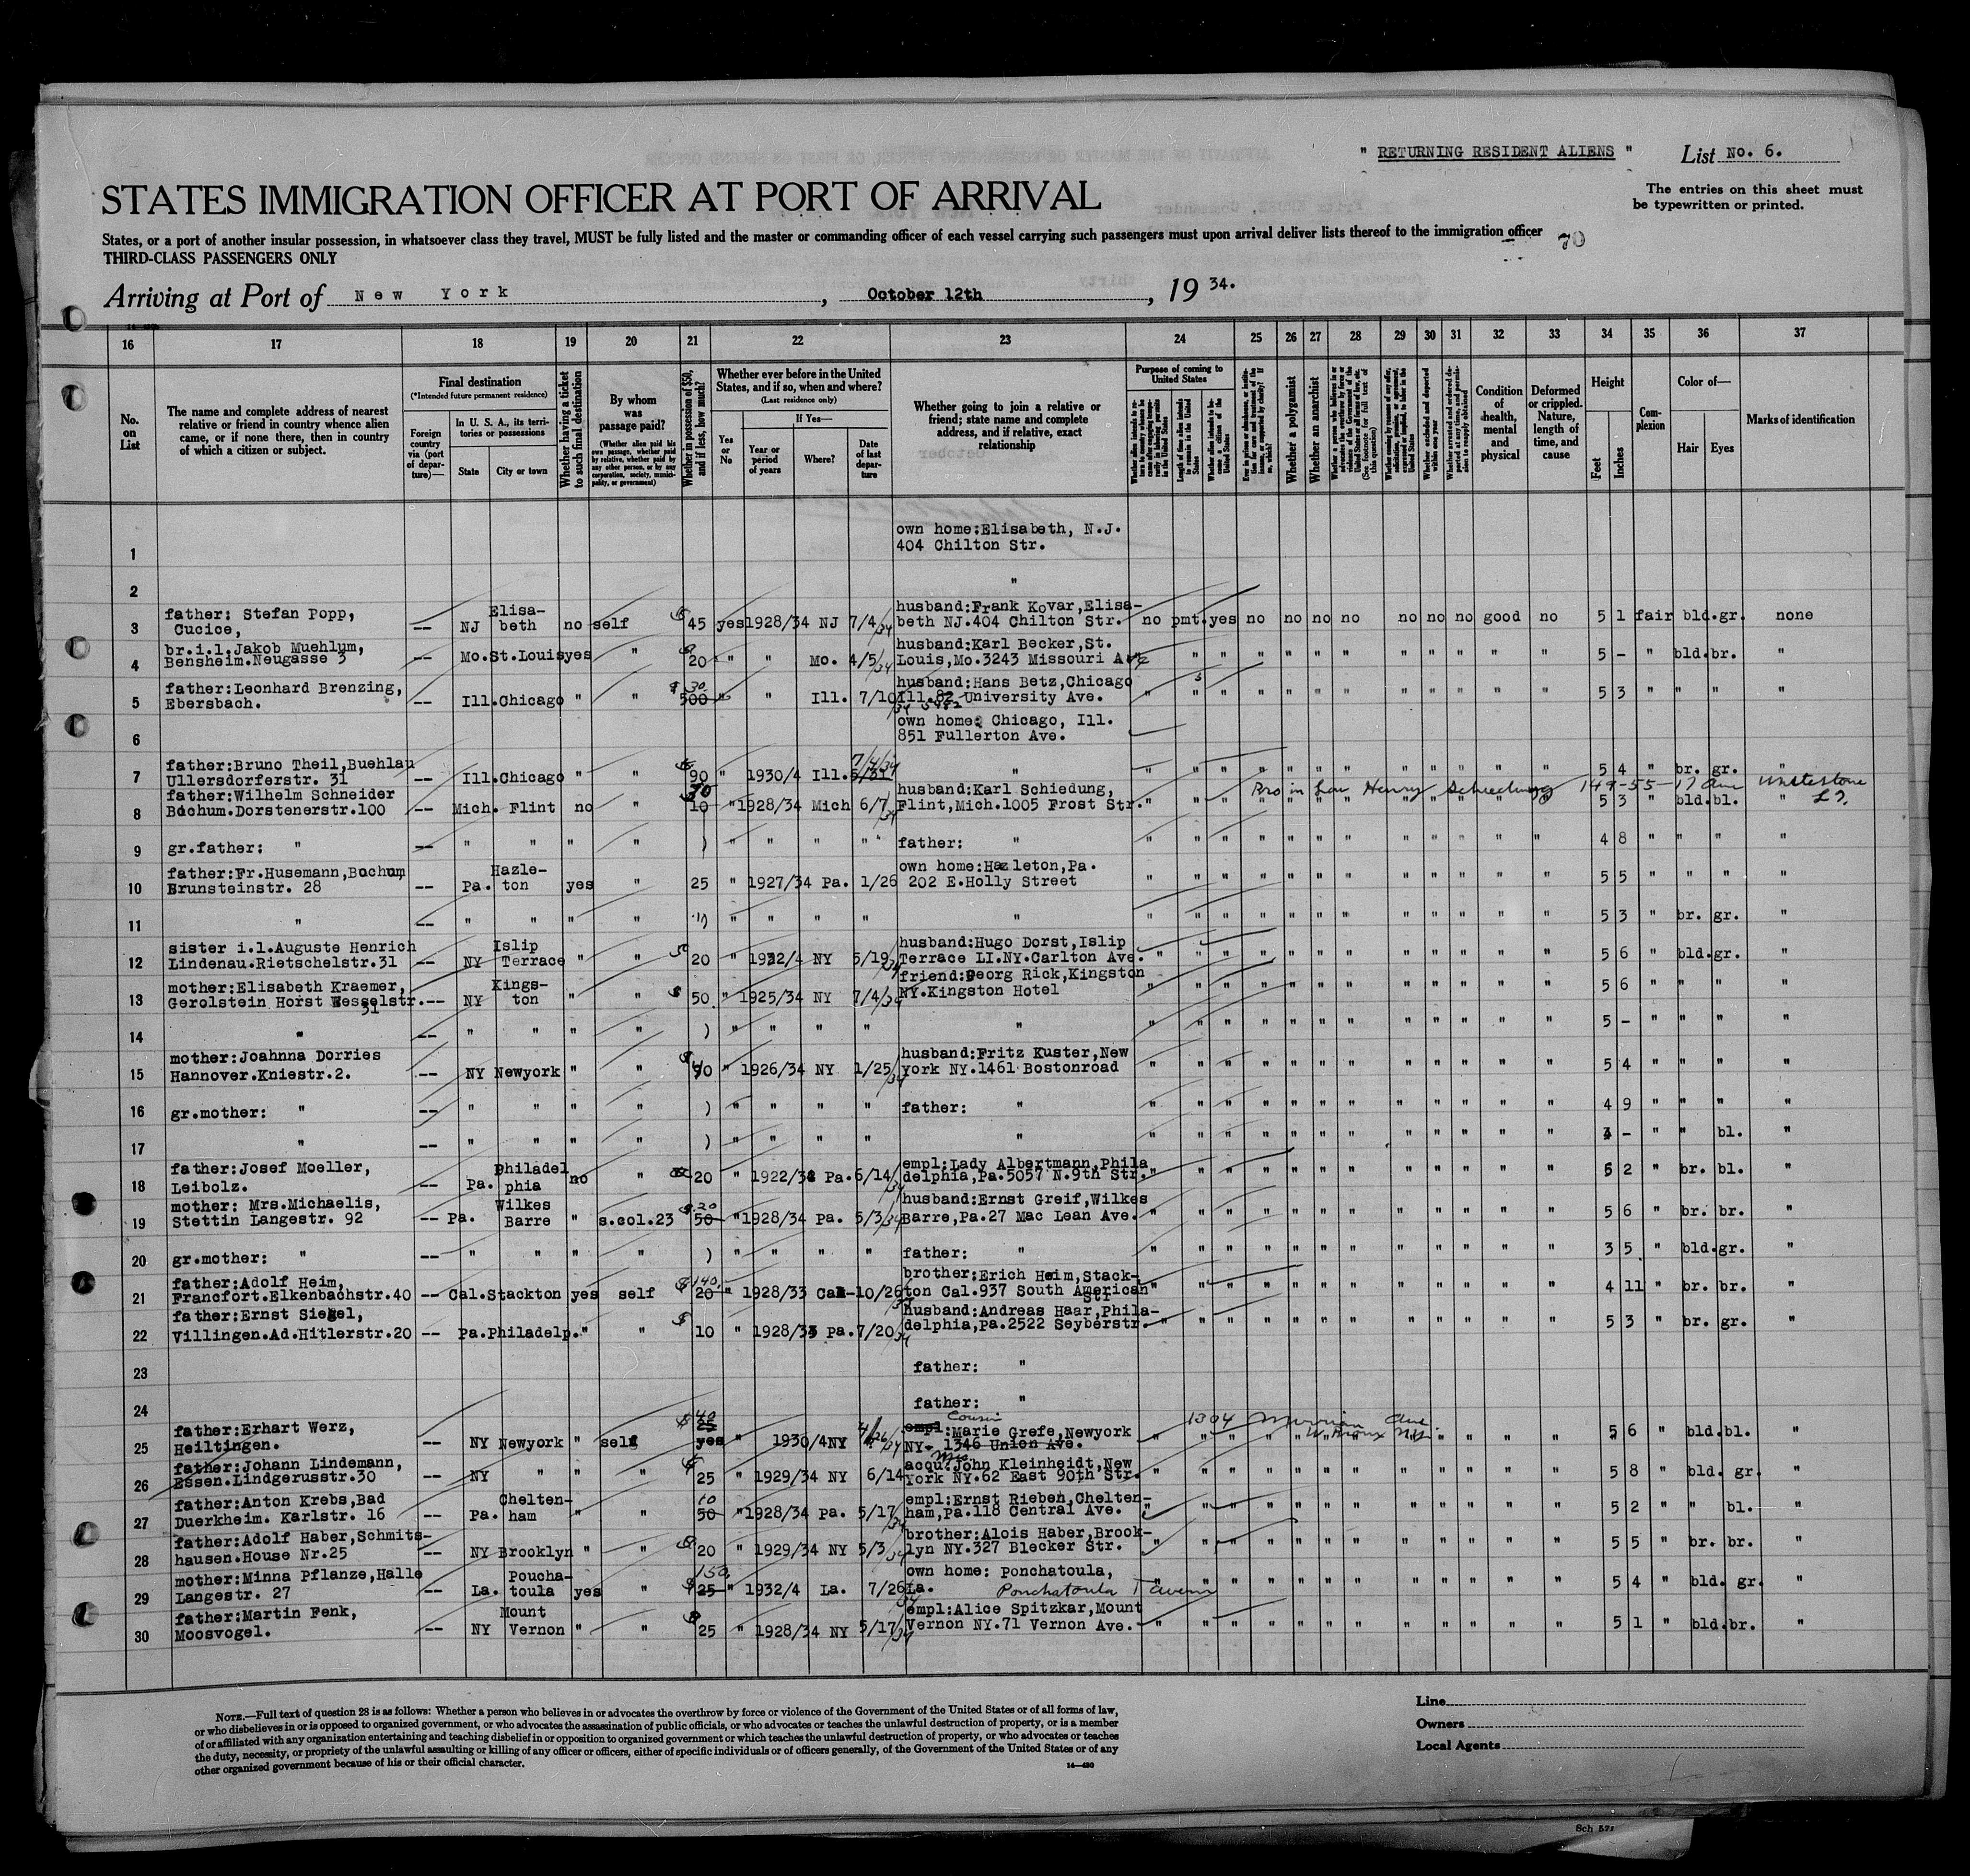 " RETURNING RESIDENT ALIENS "
List No. 6.
STATES IMMIGRATION OFFICER AT PORT OF ARRIVAL
The entries on this sheet must
be typewritten or printed.
States, or a port of another insular possession, in whatsoever class they travel, MUST be fully listed and the master or commanding officer of each vessel carrying such passengers must upon arrival deliver lists thereof to the immigration officer
70
THIRD-CLASS PASSENGERS ONLY
Arriving at Port of New York, October 12th, 19 34.
16 17 18 19 20 21 22 23 24 25 26 27 28 29 30 31 32 33 34 35 36 37
No. on List
The name and complete address of nearest relative or friend in country whence alien came, or if none there, then in country of which a citizen or subject.
Final destination
(*Intended future permanent residence)
Foreign country via (port of departure)—
In U. S. A., its territories or possessions
State City or town
Whether having a ticket to such final destination
By whom was passage paid?
(Whether alien paid his own passage, whether paid by relative, whether paid by any other person, or by any corporation, society, municipality, or government)
Whether in possession of $50, and if less, how much?
Whether ever before in the United States, and if so, when and where?
(Last residence only)
Yes or No
If Yes—
Year or period of years
Where?
Date of last departure
Whether going to join a relative or friend; state name and complete address, and if relative, exact relationship
Purpose of coming to United States
Whether a polygamist
Whether an anarchist
Condition of health, mental and physical
Deformed or crippled. Nature, length of time, and cause
Height
Feet Inches
Complexion
Color of—
Hair Eyes
Marks of identification
1 own home:Elisabeth, N.J.
404 Chilton Str.
2 "
3 father: Stefan Popp, Cucice, -- NJ Elisabeth no self $ 45 yes 1928/34 NJ 7/4/34 husband:Frank Kovar,Elisabeth NJ.404 Chilton Str. no pmt. yes no no no no no no no good no 5 1 fair bld. gr. none
4 br.i.l.Jakob Muehlum, Bensheim.Neugasse 3 -- Mo. St.Louis yes " $ 20 " " Mo. 4/5/34 husband:Karl Becker,St. Louis,Mo.3243 Missouri Ave " " " " " " " " " " " " 5 - " bld. br. "
5 father:Leonhard Brenzing, Ebersbach. -- Ill. Chicago " " $ 30 500 " " Ill. 7/10/34 husband:Hans Betz,Chicago Ill.82 University Ave. " " " " " " " " " " " " 5 3 " " " "
6 own home: Chicago, Ill.
851 Fullerton Ave.
7 father:Bruno Theil,Buehlau Ullersdorferstr. 31 -- Ill. Chicago " " $ 90 " 1930/4 Ill. 7/4/34 " " " " " " " " " " " " " 5 4 " br. gr. "
8 father:Wilhelm Schneider Bochum.Dorstenerstr.100 -- Mich. Flint no " 10 " 1928/34 Mich 6/7/34 husband:Karl Schiedung, Flint,Mich.1005 Frost Str. Bro in Law Henry 149-55-17 Ave Whitestone L.I. 5 3 " bld. bl. "
9 gr.father: " -- " " " " ) " " " " father: " " " " " " " " " " " " " 4 8 " " " "
10 father:Fr.Husemann,Bochum, Brunsteinstr. 28 -- Pa. Hazleton yes " 25 " 1927/34 Pa. 1/26 own home:Hazleton,Pa. 202 E.Holly Street " " " " " " " " " " " " 5 5 " " " "
11 " -- " " " " ") " " " " " " " " " " " " " " " " " 5 3 " br. gr. "
12 sister i.l.Auguste Henrich Lindenau.Rietschelstr.31 -- NY Islip Terrace " " $ 20 " 1922/4 NY 5/19/34 husband:Hugo Dorst,Islip Terrace LI.NY.Carlton Ave. " " " " " " " " " " " " 5 6 " bld. gr. "
13 mother:Elisabeth Kraemer, Gerolstein Horst Wesselstr. 31 -- NY Kingston " " $ 50 " 1925/34 NY 7/4/34 friend:Georg Rick,Kingston NY.Kingston Hotel " " " " " " " " " " " " 5 6 " " " "
14 " -- " " " " ) " " " " " " " " " " " " " " " " " 5 - " " " "
15 mother:Joahnna Dorries Hannover.Kniestr.2. -- NY Newyork " " $ 40 " 1926/34 NY 1/25/34 husband:Fritz Kuster,New york NY.1461 Bostonroad " " " " " " " " " " " " 5 4 " " " "
16 gr.mother: " -- " " " " ) " " " " father: " " " " " " " " " " " " " 4 9 " " " "
17 " -- " " " " ) " " " " " " " " " " " " " " " " " 3 - " " bl. "
18 father:Josef Moeller, Leibolz. -- Pa. Philadelphia no " 20 " 1922/34 Pa. 6/14/34 empl:Lady Albertmann,Philadelphia,Pa.5057 N.9th Str. " " " " " " " " " " " " 5 2 " br. bl. "
19 mother: Mrs.Michaelis, Stettin Langestr. 92 -- Pa. Wilkes Barre " s.col.23 $ 20 50 " 1928/34 Pa. 5/3/34 husband:Ernst Greif,Wilkes Barre,Pa.27 Mac Lean Ave. " " " " " " " " " " " " 5 6 " br. br. "
20 gr.mother: " -- " " " " ) " " " " father: " " " " " " " " " " " " " 3 5 " bld. gr. "
21 father:Adolf Heim, Francfort.Elkenbachstr.40 -- Cal. Stackton yes self $ 140. 20 " 1928/33 Cal 10/26/33 brother:Erich Heim,Stackton Cal.937 South American Str " " " " " " " " " " " " 4 11 " br. br. "
22 father:Ernst Siegel, Villingen.Ad.Hitlerstr.20 -- Pa. Philadelp. " " $ 10 " 1928/33 Pa. 7/20/34 husband:Andreas Haar,Philadelphia,Pa.2522 Seyberstr. " " " " " " " " " " " " 5 3 " br. gr. "
23 father: "
24 father: "
25 father:Erhart Werz, Heiltingen. -- NY Newyork " self $ 40 25 yes " 1930/4 NY 4/26/34 empl: Cousin Marie Grefe,Newyork NY- 1346 Union Ave. 1304 Merriam Ave. W. Bronx N.Y. 5 6 " bld. bl. "
26 father:Johann Lindemann, Essen.Lindgerusstr.30 -- NY " " " $ 25 " 1929/34 NY 6/14 acqu: John Kleinheidt,New york NY.62 East 90th Str. " " " " " " " " " " " " 5 8 " bld. gr. "
27 father:Anton Krebs,Bad Duerkheim. Karlstr. 16 -- Pa. Cheltenham " " 10 50 " 1928/34 Pa. 5/17/34 empl:Ernst Rieben,Cheltenham,Pa.118 Central Ave. " " " " " " " " " " " " 5 2 " " bl. "
28 father:Adolf Haber,Schmitshausen.House Nr.25 -- NY Brooklyn " " $ 20 " 1929/34 NY 5/3/34 brother:Alois Haber,Brooklyn NY.327 Blecker Str. " " " " " " " " " " " " 5 5 " br. br. "
29 mother:Minna Pflanze,Halle Langestr. 27 -- La. Pouchatoula yes " $ 150. 25 " 1932/4 La. 7/26/34 own home: Ponchatoula, La. Ponchatoula Tavern " " " " " " " " " " " 5 4 " bld. gr. "
30 father:Martin Fenk, Moosvogel. -- NY Mount Vernon " " $ 25 " 1928/34 NY 5/17/34 empl:Alice Spitzkar,Mount Vernon NY.71 Vernon Ave. " " " " " " " " " " " " 5 1 " bld. br. "
NOTE.—Full text of question 28 is as follows: Whether a person who believes in or advocates the overthrow by force or violence of the Government of the United States or of all forms of law,
or who disbelieves in or is opposed to organized government, or who advocates the assassination of public officials, or who advocates or teaches the unlawful destruction of property, or is a member
of or affiliated with any organization entertaining and teaching disbelief in or opposition to organized government or which teaches the unlawful destruction of property, or who advocates or teaches
the duty, necessity, or propriety of the unlawful assaulting or killing of any officer or officers, either of specific individuals or of officers generally, of the Government of the United States or of any
other organized government because of his or their official character.
14—430
Line
Owners
Local Agents
Sch 57a